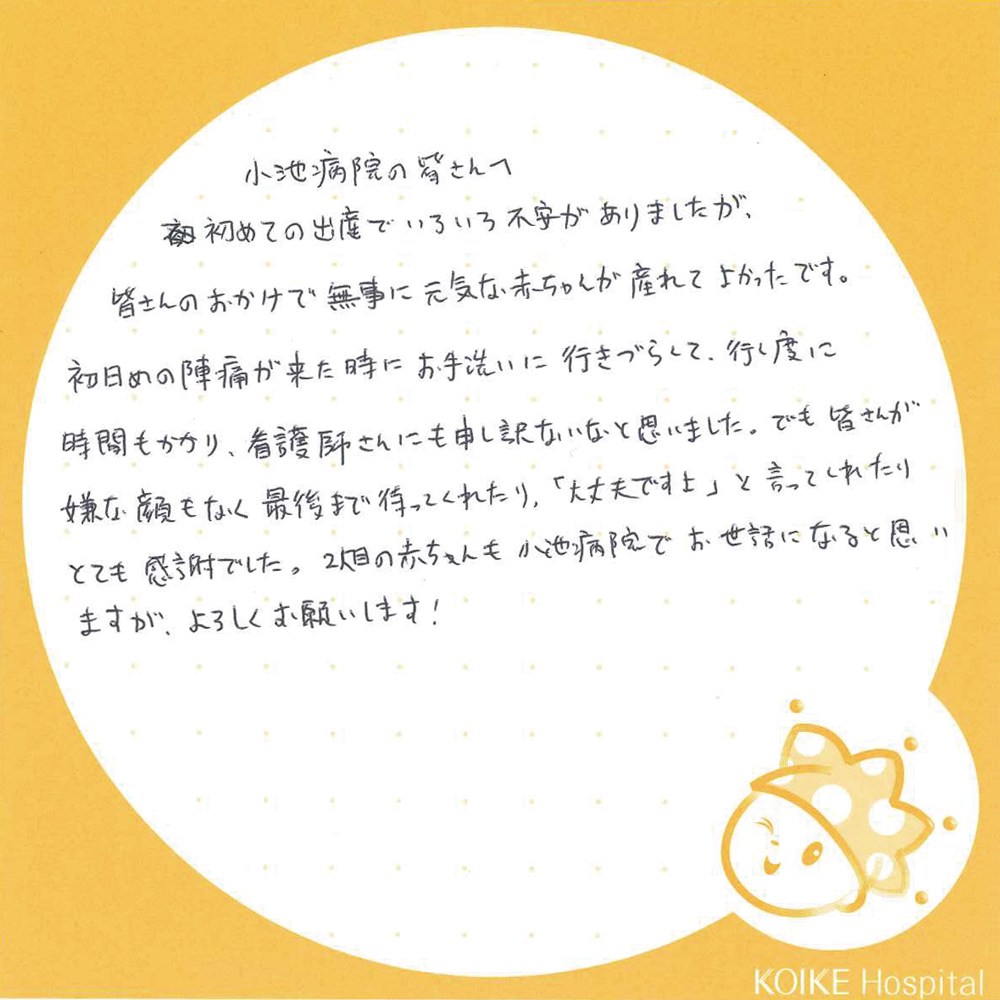 小池病院の皆さんへ
初めての出産でいろいろ不安がありましたが、
皆さんのおかけで無事に元気な赤ちゃんが産れてよかったです。
初日めの陣痛が来た時にお手洗いに行きづらくて、行く度に
時間もかかり、看護師さんにも申し訳ないなと思いました。でも皆さんが
嫌な顔もなく最後まで待ってくれたり,「大丈夫ですよ」と言ってくれたり
とても感謝でした。2人目の赤ちゃんも小池病院でお世話になると思い
ますが、よろしくお願いします!
KOIKE Hospital